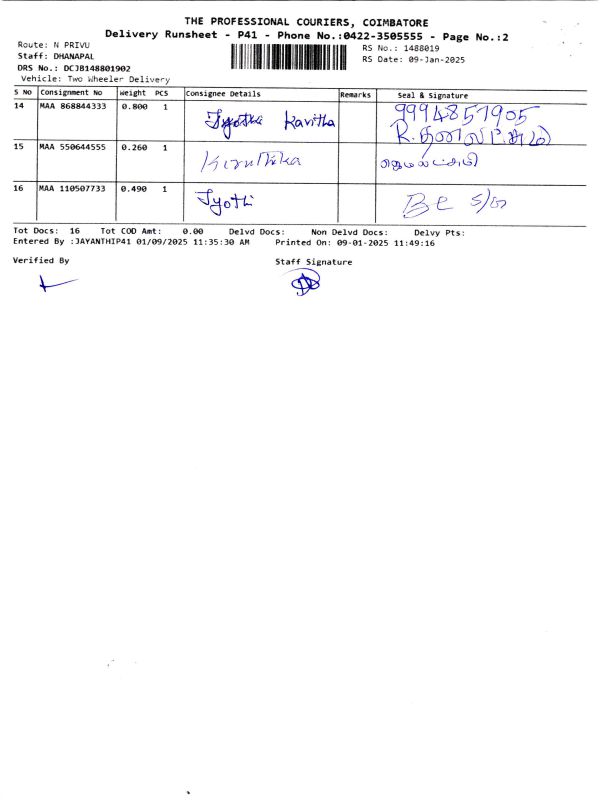 THE PROFESSIONAL COURIERS, COIMBATORE
Delivery Runsheet - P41 - Phone No.:0422-3505555 - Page No.:2
Route: N PRIVU
RS No.: 1488019
Staff: DHANAPAL
RS Date: 09-Jan-2025
DRS No.: DCJB148801902
Vehicle: Two Wheeler Delivery
S NO Consignment No Weight PCS Consignee Details Remarks Seal & Signature
14 MAA 868844333 0.800 1 Jyothi Kavitha 9994857905
R.
15 MAA 550644555 0.260 1 Kiruthika
16 MAA 110507733 0.490 1 Jyothi
Tot Docs: 16 Tot COD Amt: 0.00 Delvd Docs: Non Delvd Docs: Delvy Pts:
Entered By :JAYANTHIP41 01/09/2025 11:35:30 AM Printed On: 09-01-2025 11:49:16
Verified By Staff Signature